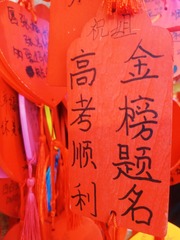 祝姐
金榜题名
高考顺利